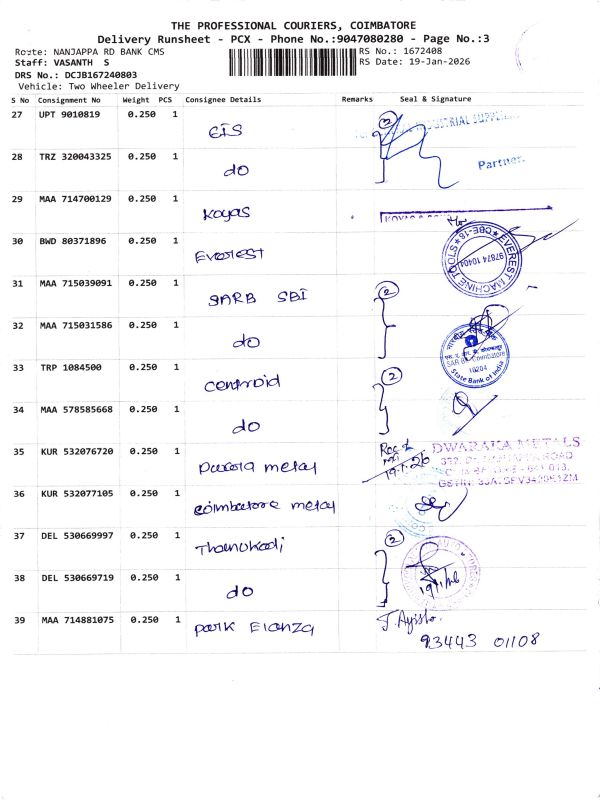 THE PROFESSIONAL COURIERS, COIMBATORE
Delivery Runsheet - PCX - Phone No.:9047080280 - Page No.:3
Route: NANJAPPA RD BANK CMS RS No.: 1672408
Staff: VASANTH S RS Date: 19-Jan-2026
DRS No.: DCJB167240803
Vehicle: Two Wheeler Delivery
S No Consignment No Weight PCS Consignee Details Remarks Seal & Signature
27 UPT 9010819 0.250 1 EIS 2
28 TRZ 320043325 0.250 1 do Partner.
29 MAA 714700129 0.250 1 Koyas
30 BWD 80371896 0.250 1 Everest EVEREST MACHINE TOOLS CBE-18 97874 10404
31 MAA 715039091 0.250 1 SARB SBI 2
32 MAA 715031586 0.250 1 do Coimbatore 18204 State Bank of India
33 TRP 1084500 0.250 1 centroid 2
34 MAA 578585668 0.250 1 do
35 KUR 532076720 0.250 1 metal 19.1.26 DWARAKA METALS
36 KUR 532077105 0.250 1 coimbatore metal
37 DEL 530669997 0.250 1 Thanukadi 2
38 DEL 530669719 0.250 1 do
39 MAA 714881075 0.250 1 park Elanza
93443 01108